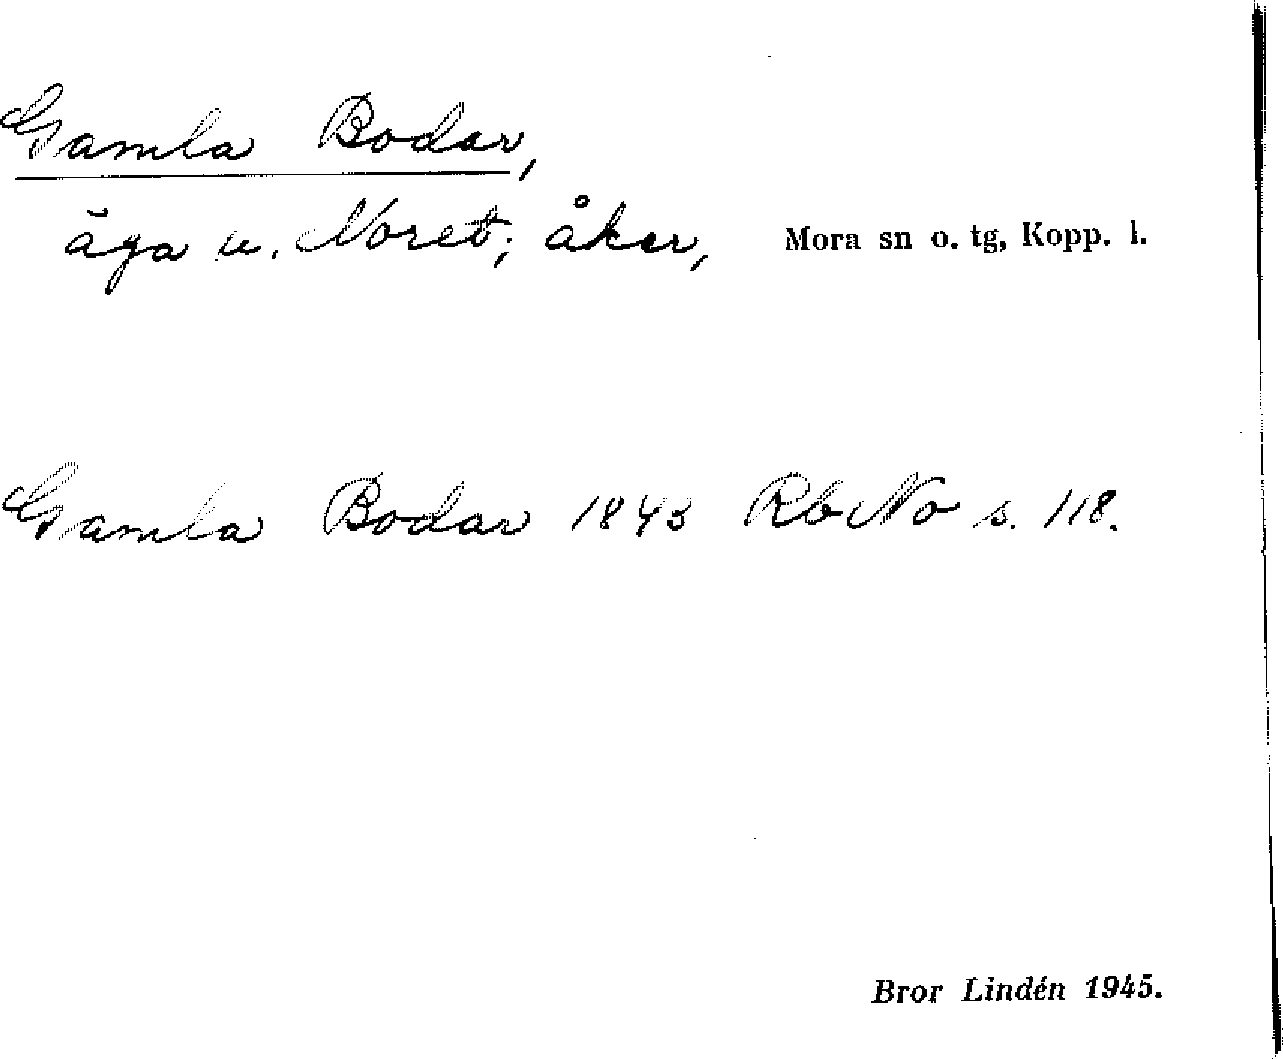 Gamla Bodar,
äga u. Noret; åker, Mora sn o. tg, Kopp. l.
Gamla Bodar 1843 RbNo s. 118.
Bror Lindén 1945.